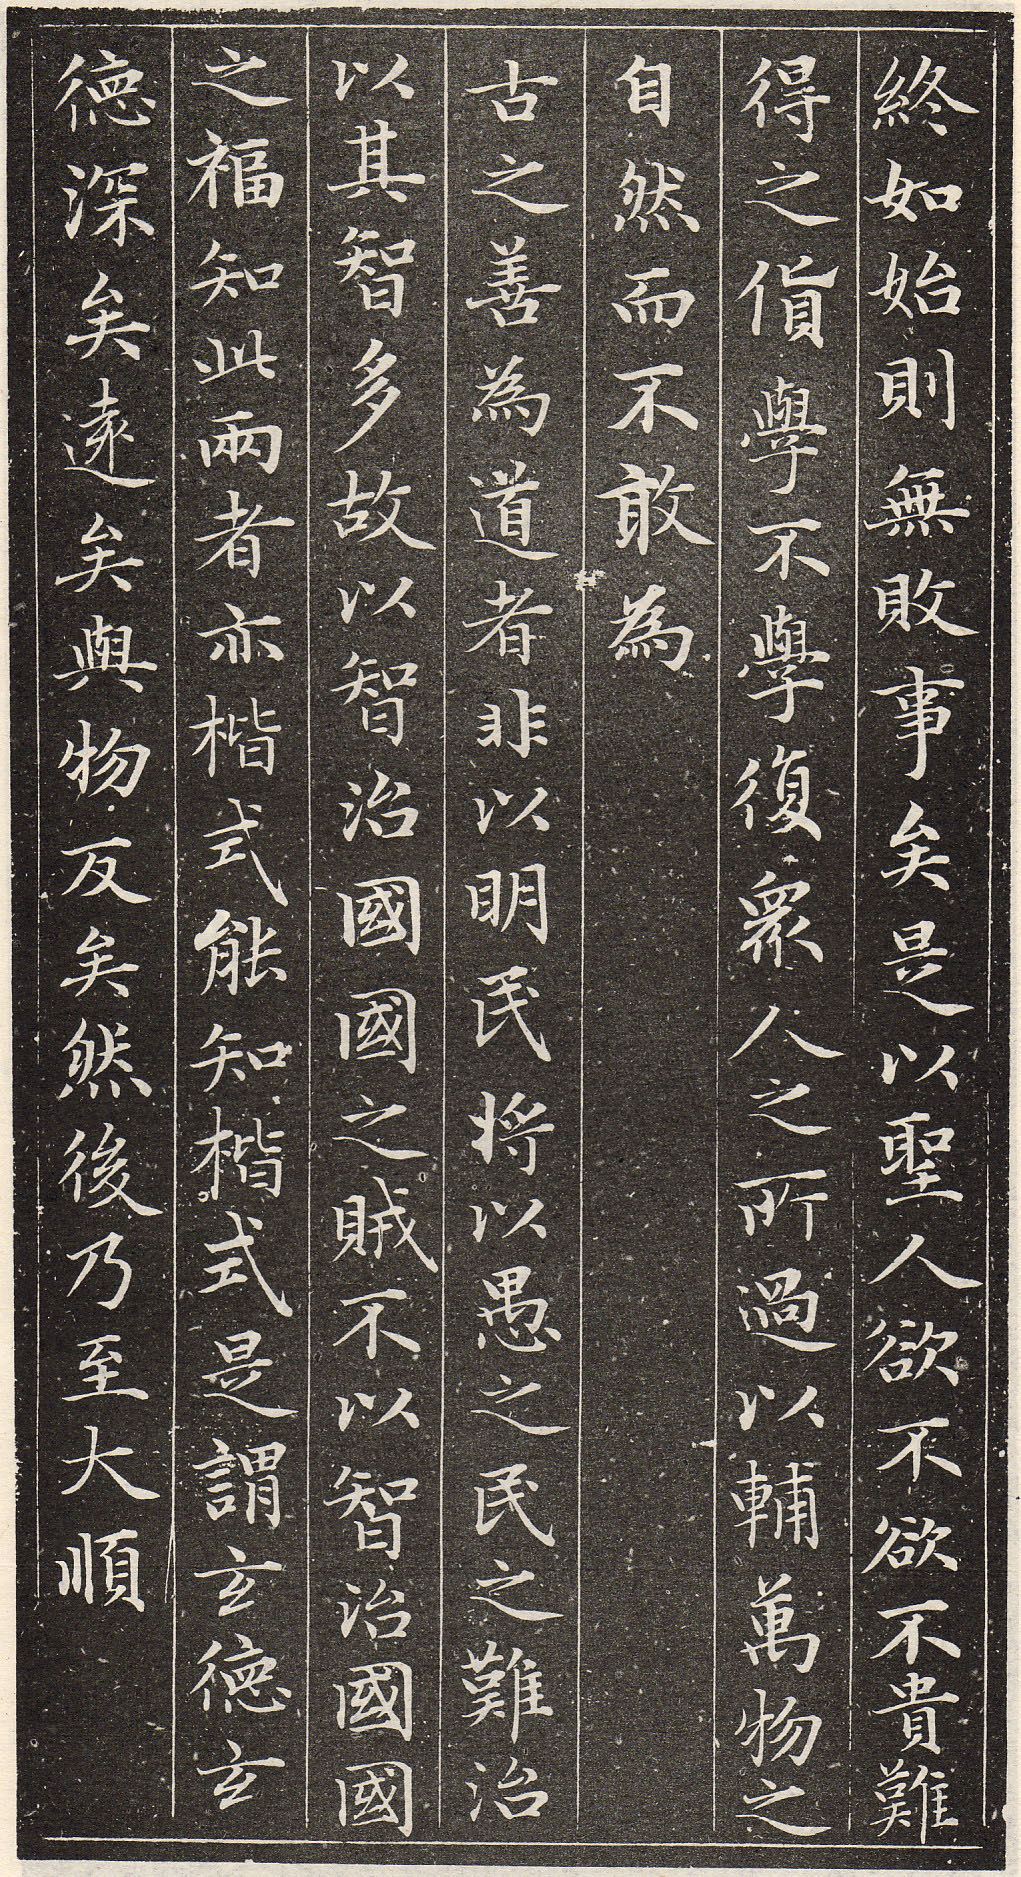 終如始則無敗事矣是以聖人欲不欲不貴難
得之貨學不學復衆人之所過以輔萬物之
自然而不敢為
古之善為道者非以明民將以愚之民之難治
以其智多故以智治國國之賊不以智治國國
之福知此兩者亦楷式能知楷式是謂玄德玄
德深矣遠矣與物反矣然後乃至大順